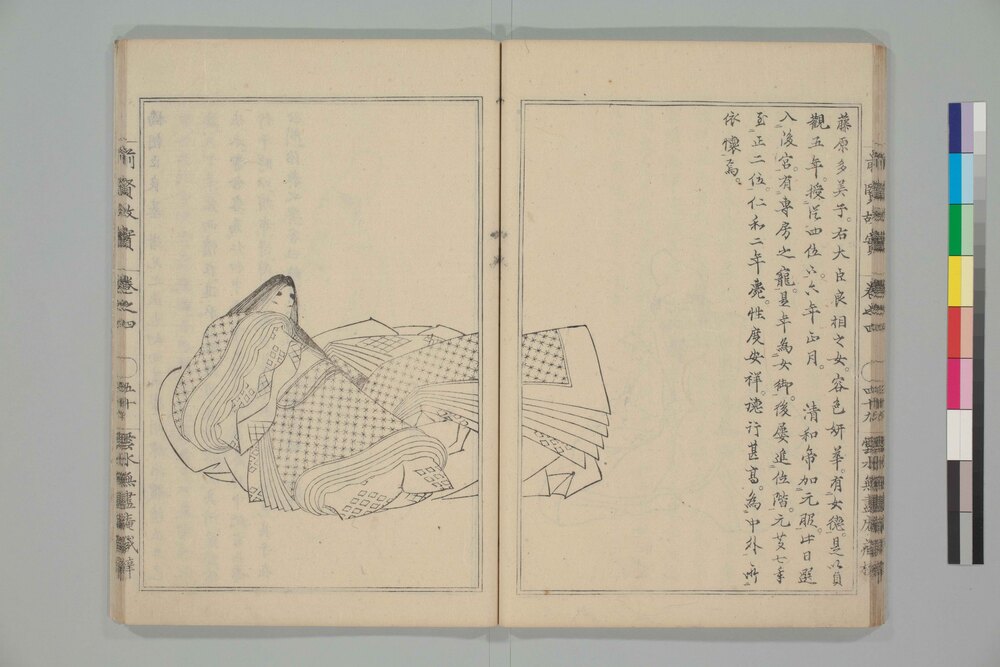 藤原多美子。右大臣良相之女。容色妍華。有女德。是以貞
觀五年。授從四位下。六年正月。 清和帝加元服。此日選
入後宮。有專房之寵。其年為女御。後屢進位階。元慶七年
至正二位。仁和二年薨。性度安祥。德行甚高。為中外所
依懷焉。
前賢故實
卷之四
前賢故實
卷之四
五十